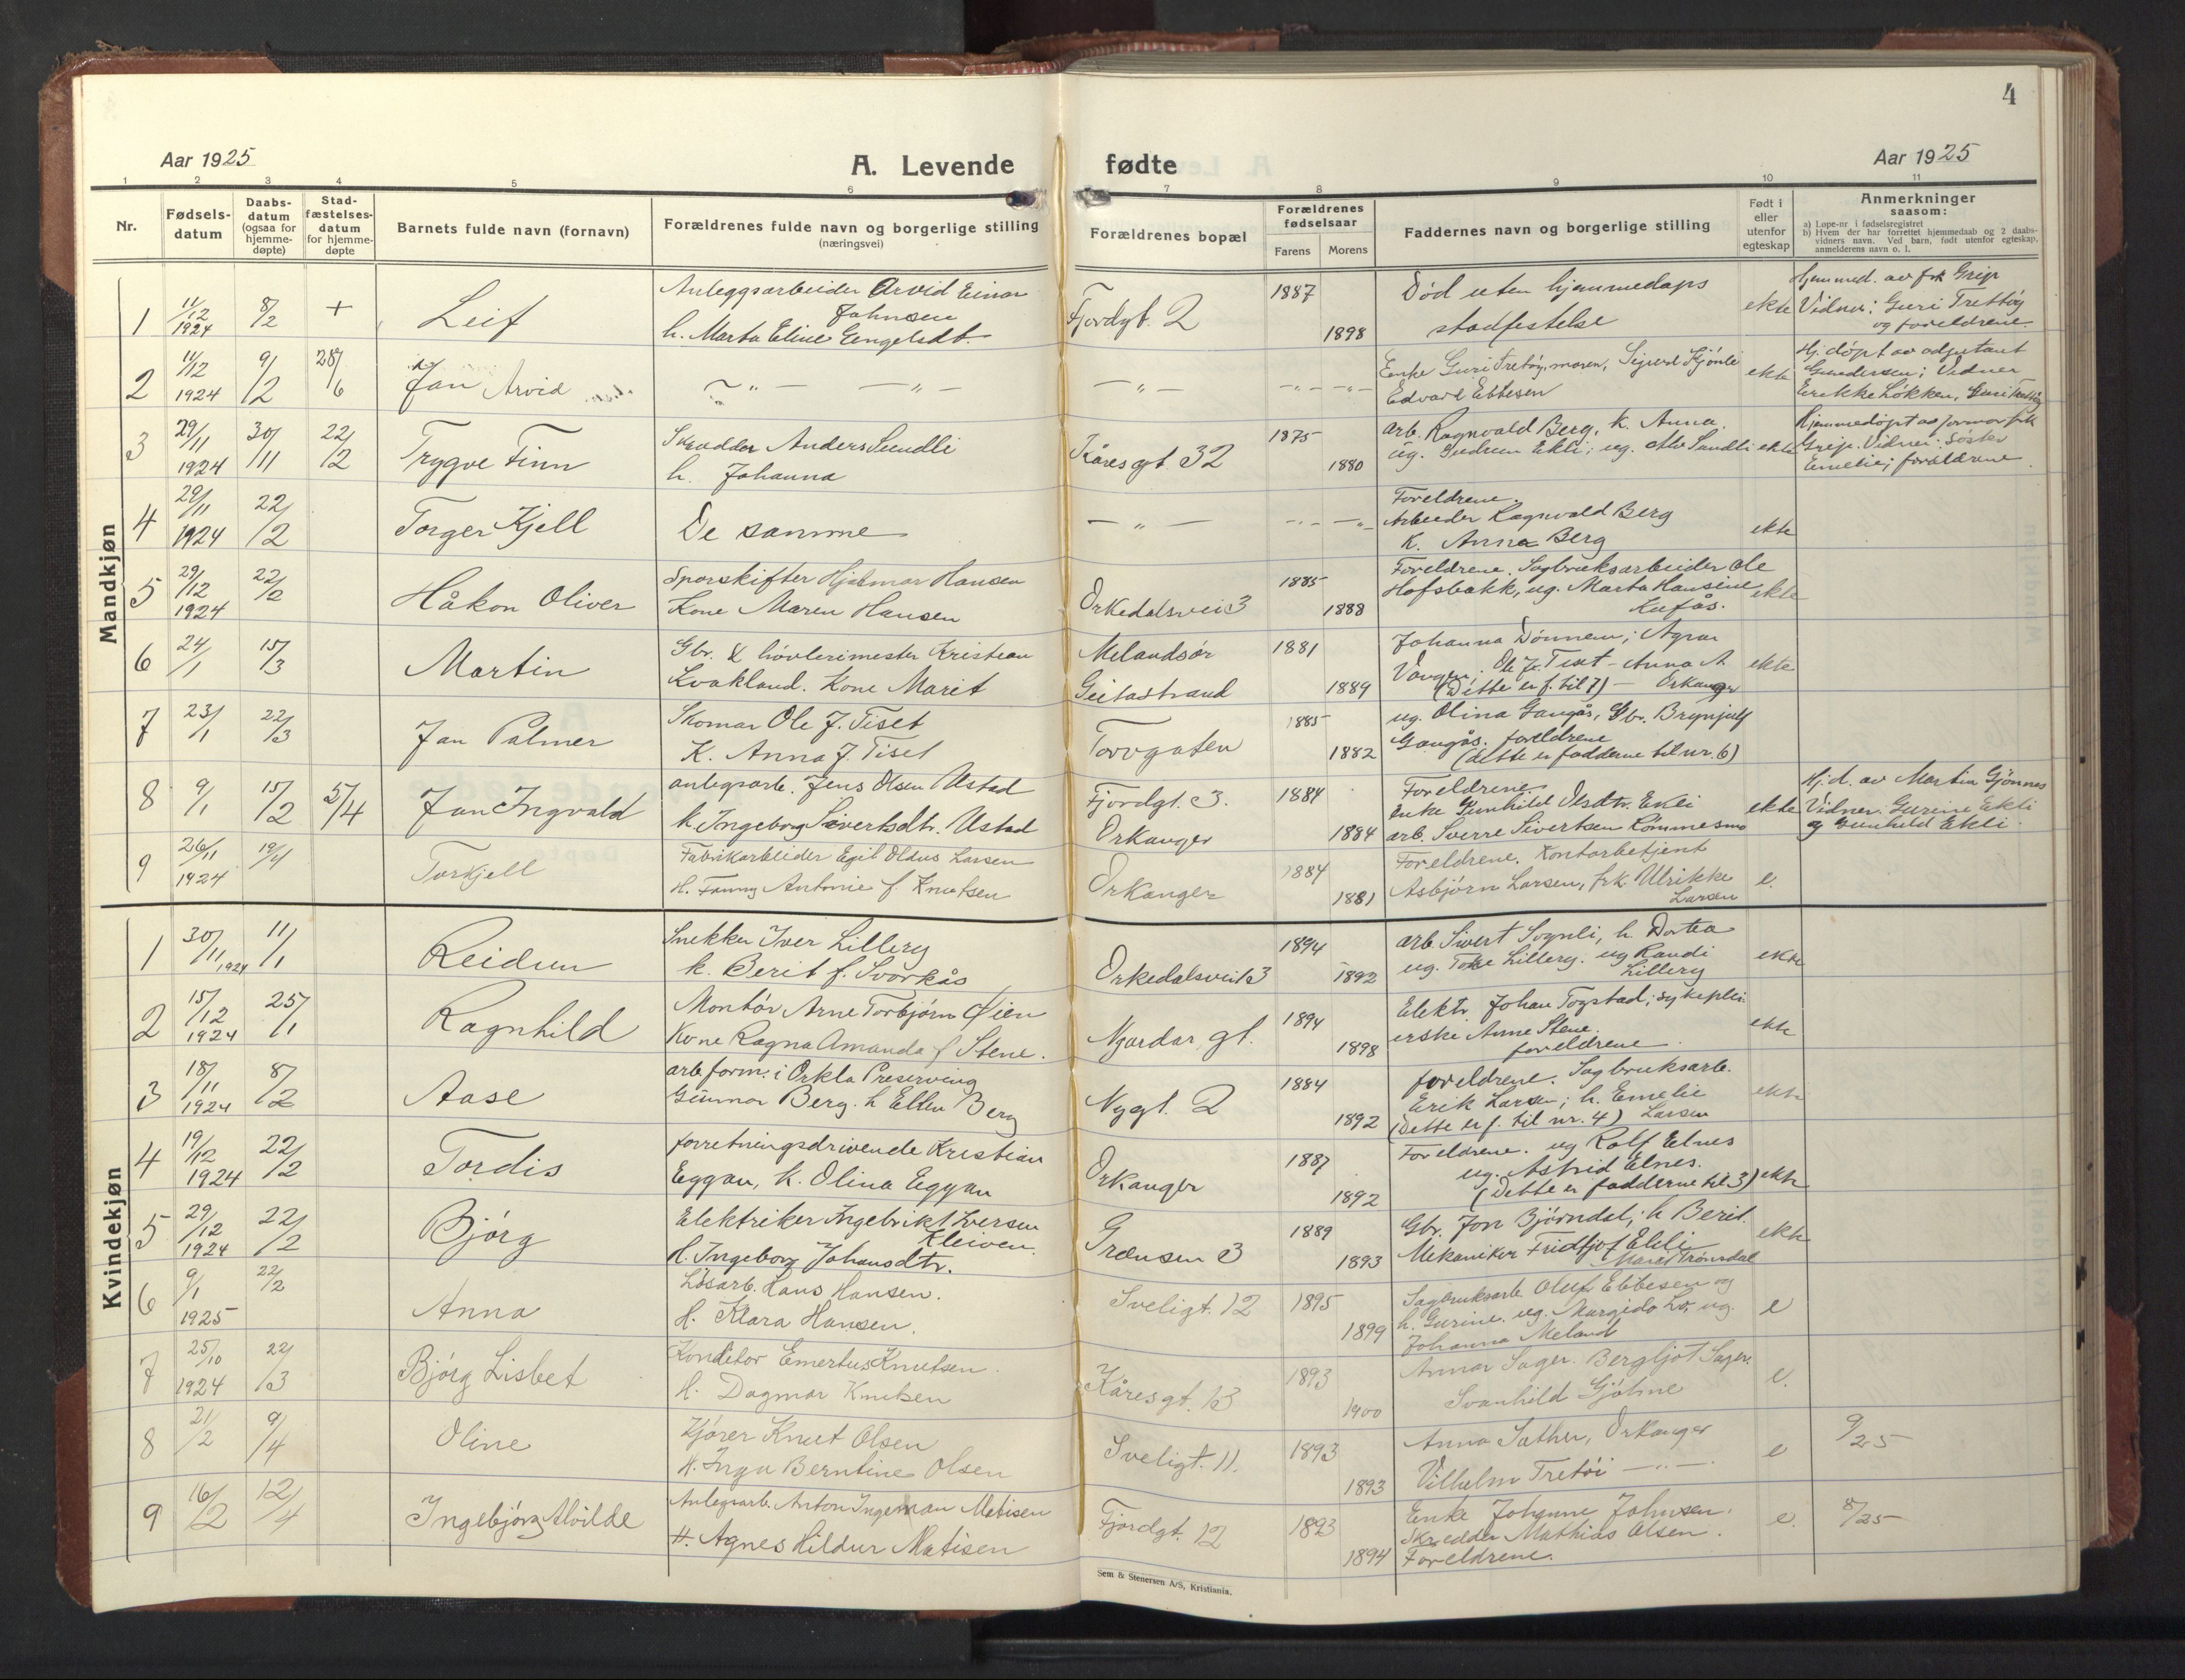 4
Aar 1925
A. Levende fødte
Aar 1925
1 2 3 4 5 6 7 8 9 10 11
Nr.
Fødsels-
datum
Daabs-
datum
(ogsaa for
hjemme-
døpte)
Stad-
fæstelses-
datum
for hjemme-
døpte
Barnets fulde navn (fornavn)
Forældrenes fulde navn og borgerlige stilling
(næringsvei)
Forældrenes bopæl
Forældrenes
fødselsaar
Farens Morens
Faddernes navn og borgerlige stilling
Født i
eller
utenfor
egteskap
Anmerkninger
saasom:
a) Løpe-nr i fødselsregistret
b) Hvem der har forrettet hjemmedaab og 2 daabs-
vidners navn. Ved barn, født utenfor egteskap,
anmelderens navn o. l.
Mandkjøn
1 11/12 1924 8/2 + Leif
Anleggsarbeider Arvid Einar
Johnsen
h. Marta Eline Engelsdt.
Fjordgt. 2 1887 1898
Død uten hjemmedaps
stadfestelse
ekte
Hjemmed. av frk Grip
Vidner: Guri Trettøy
og foreldrene.
2 11/12 1924 9/2 28/6 Jan Arvid
— " — — " —
— " — — " — — " —
Enke Guri Tretøy, moren, Sigurd Kjønli
Edvard Ebbesen
ekte
Hj. døpt av adjutant
Gundersen; Vidner
Erikke Løkken, Guri Trettøy
3 29/11 1924 30/11 22/2 Trygve Finn
Skrædder Anders Sundli
h. Johanna
Kåresgt 32 1875 1880
arb. Ragnvald Berg, k. Anna.
ug. Gudrun Ekli; ug. Sundli
ekte
Hjemmedøpt av jormor frk
Grip. Vidner: Søster
Emelie; foreldrene.
4 29/11 1924 22/2 Torger Kjell
De samme
— " — — " — — " —
Foreldrene.
Arbeider Ragnvald Berg
K. Anna Berg
ekte
5 29/12 1924 22/2 Håkon Oliver
Sporskifter Hjalmar Hansen
Kone Maren Hansen
Orkedalsvei 3 1885 1888
Foreldrene. Sagbruksarbeider Ole
Hofsbakk, ug. Marta Hansine
ekte
6 24/1 15/3 Martin
Gbr. & høvlerimester Kristian
Kvakland. Kone Marit
Melandsør
Geitastrand
1881 1889
Johanna Dønnem; Agnar
Ole J. Tiset - Anna A
(Dette er f. til 7) — Orkanger
ekte
7 23/1 22/3 Jan Palmer
Skomar Ole J. Tiset
K. Anna J. Tiset
Torvgaten 1885 1882
ug. Olina Gangås, Gbr. Brynjulf
Gangås. foreldrene
(dette er fadderne til nr. 6)
8 9/1 15/2 5/4 Jan Ingvald
anlegsarb. Jens Olsen Ustad
k. Ingeborg Sivertsdtr. Ustad
Fjordgt. 3.
Orkanger
1884 1884
Foreldrene.
Enke Gunhild Olsdtr. Ekli
arb. Sverre Sivertsen Rømmesmo
ekte
Hj. d. av Martin Gjønnes
Vidner. Gurine Ekli
og Gunhild Ekli.
9 26/11 1924 19/4 Torkjell
Fabrikarbeider Egil Oldus Larsen
H. Fanny Antonie f. Knutsen
Orkanger 1884 1881
Foreldrene. Kontorbetjent
Asbjørn Larsen, frk Ulrikke
Larsen
e.
Kvindekjøn
1 30/11 1924 11/1 Reidun
Snekker Iver Lillery
k. Berit f. Svorkås
Orkedalsveits 3 1894 1892
arb. Sivert Sognli, h. Dortea
ug. Tore Lillery. ug Randi
Lillery
ekte
2 15/12 1924 25/1 Ragnhild
Montør Arne Torbjørn Øien
Kone Ragna Amanda f Stene.
Njardar gt. 1894 1898
Elektr. Johan Togstad; sykeplei-
erske Anne Stene.
foreldrene.
ekte
3 18/11 1924 8/2 Aase
arb.form. i Orkla Preserving
Gunnar Berg. h Ellen Berg
Nygt. 2 1884 1892
foreldrene. Sagbruksarb.
Erik Larsen; h. Emelie
(Dette er f. til nr. 4) Larsen
ekte
4 19/12 1924 22/2 Tordis
forretningsdrivende Kristian
Eggan, k. Olina Eggan
Orkanger 1887 1892
Foreldrene. ug Rolf Elnes
ug. Astrid Elnes.
(Dette er fadderne til 3)
ekte
5 29/12 1924 22/2 Bjørg
Elektriker Ingebrikt Iversen
Kleiven.
H. Ingeborg Johansdtr.
Grænsen 3 1889 1893
Gbr. Jon Bjørndal; h Berit.
Mekaniker Fridtjof Ekli
Marit Trønsdal
ekte
6 9/1 1925 22/2 Anna
Løsarb. Hans Hansen.
H. Klara Hansen.
Sveligt. 12 1895 1899
Sagbruksarb Oluf Ebbesen og
h. Gurine. ug. Margido Lo, ug.
Johanna Meland
e
7 25/10 1924 22/3 Bjørg Lisbet
Konditor Emertus Knutsen.
H. Dagmar Knutsen
Kåresgt. 13 1893 1900
Annar Sager. Bergljot Sager.
Svanhild Gjølme
e.
8 21/2 9/4 Oline
Kjører Knut Olsen
H. Inga Berntine Olsen
Sveligt. 11. 1893 1893
Anna Sather, Orkanger
Vilhelm Tretøi — " —
e
9/25
9 16/2 12/4 Ingebjørg Alvilde
Anlegsarb. Anton Ingeman Matisen
H. Agnes Hildur Matisen
Fjordgt. 12 1893 1894
Enke Johanne Johnsen.
Skredder Mathias Olsen.
Foreldrene.
e.
8/25
Sem & Stenersen A/S, Kristiania.